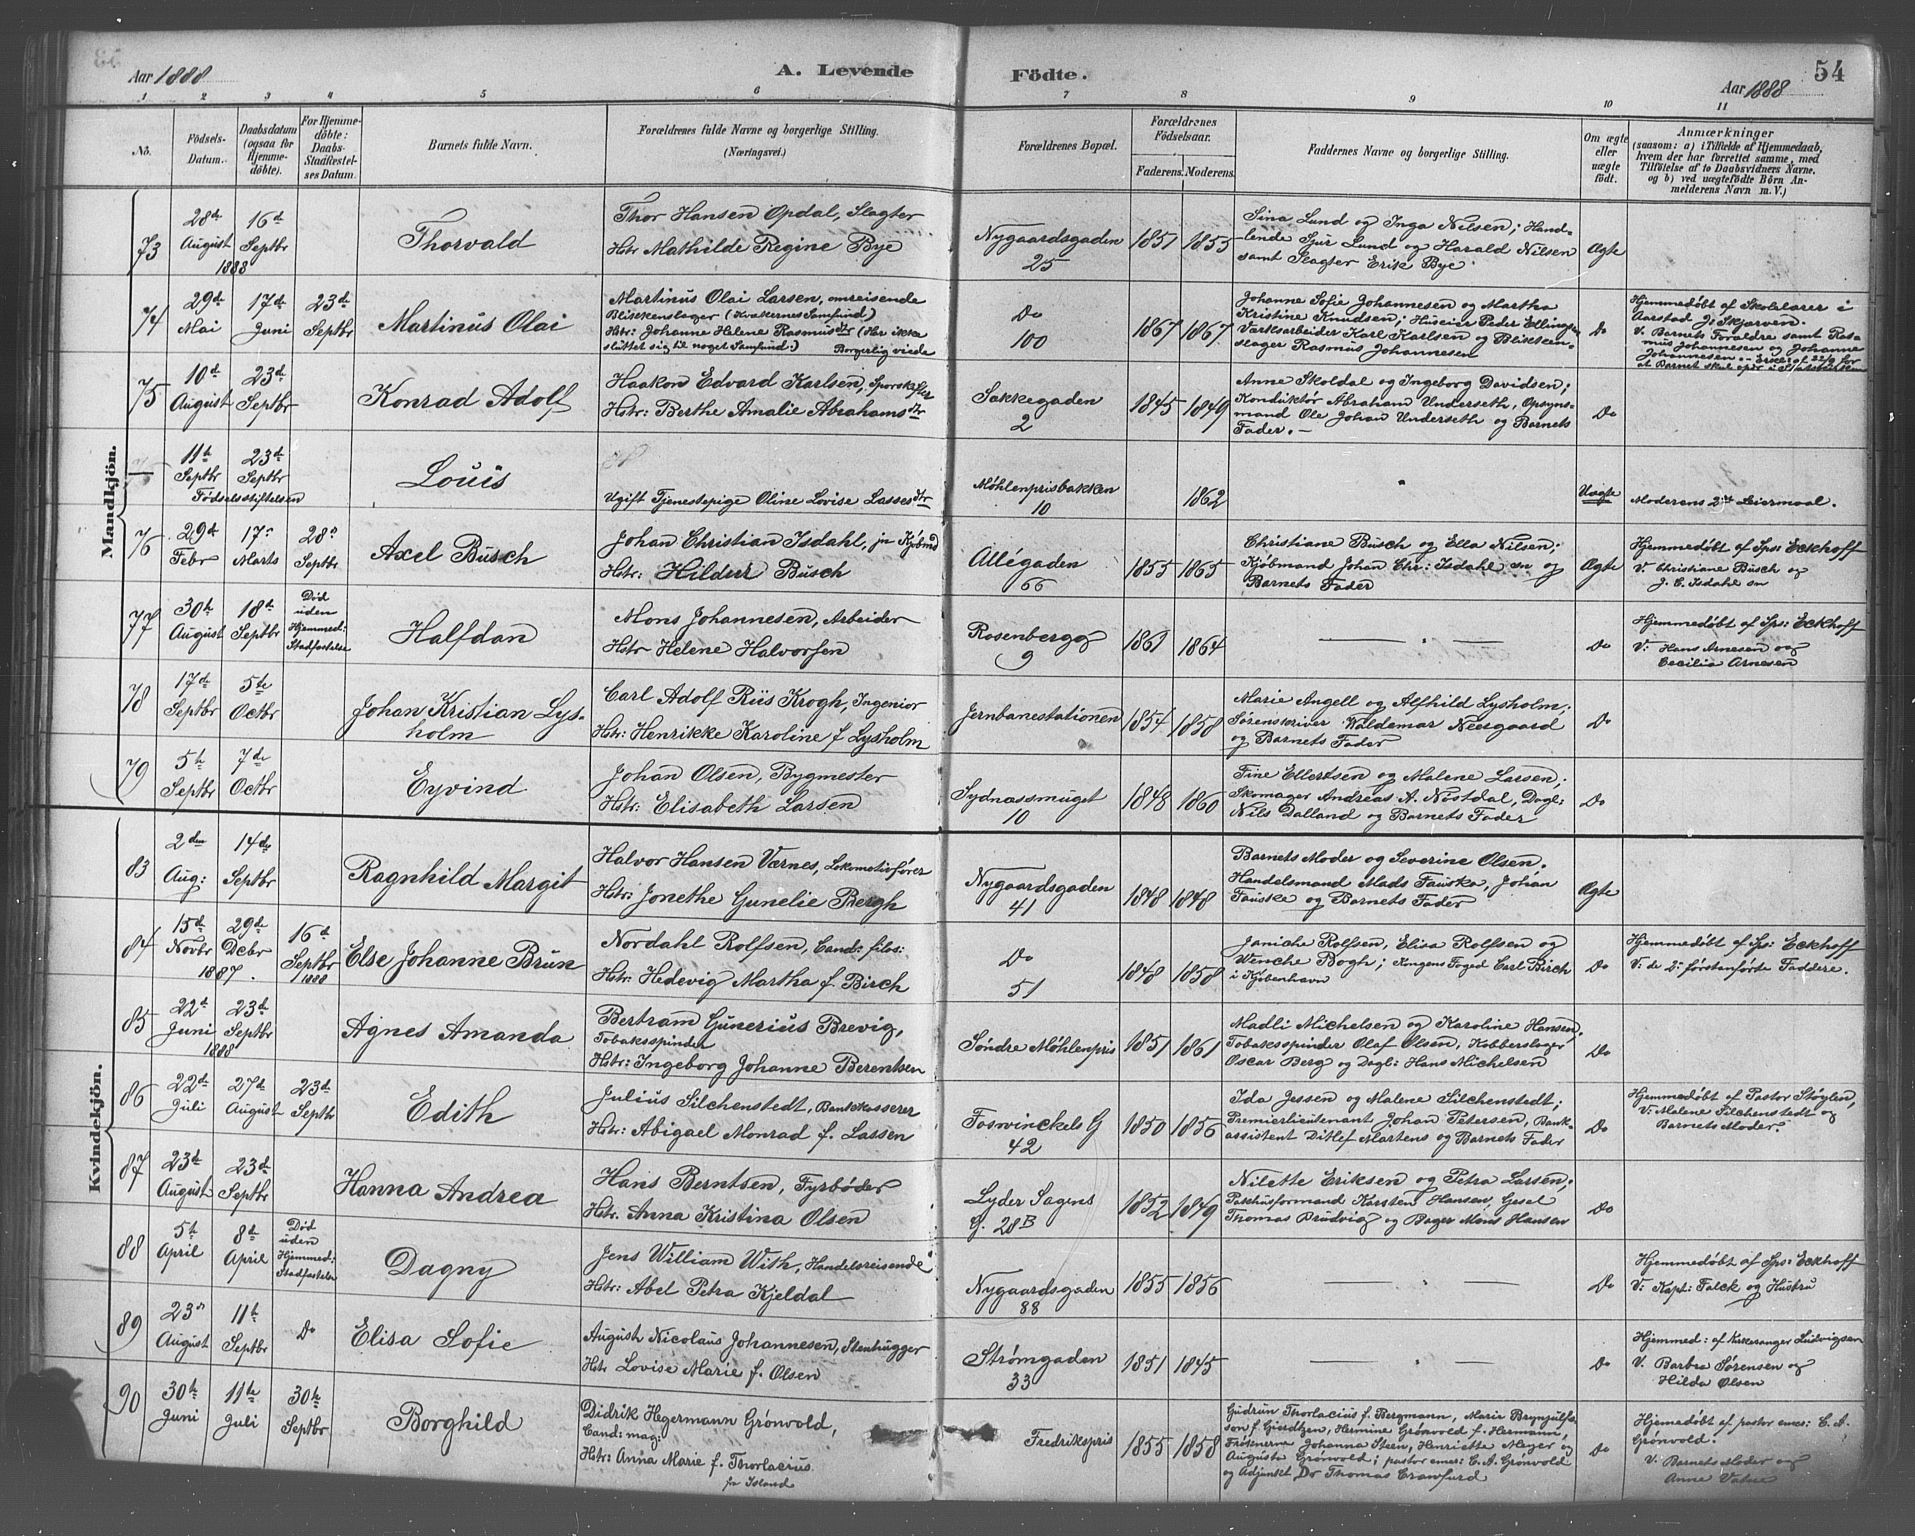 Aar 1888
A. Levende Födte.
54
Aar 1888
1 2 3 4 5 6 7 8 9 10 11
No.
Födsels-Datum.
Daabsdatum (ogsaa for Hjemmedöbte).
For Hjemmedöbte: Daabs-Stadfæstelses Datum.
Barnets fulde Navn.
Forældrenes fulde Navne og borgerlige Stilling. (Næringsvei.)
Forældrenes Bopæl.
Forældrenes Födselsaar.
Faderens. Moderens.
Faddernes Navne og borgerlige Stilling.
Om ægte eller uægte födt.
Anmærkninger
(saasom: a) i Tilfælde af Hjemmedaab, hvem der har forrettet samme, med Tilföielse af to Daabsvidners Navne, og b) ved uægtefödte Börn Anmelderens Navn m. V.)
Mandkjön.
73
28de August 1888
16d Septbr
Thorvald
Thor Hansen Opdal, Slagter
Hstr Mathilde Regine Bye
Nygaardsgaden 25
1851 1853
Sina Lund og Inga Nilsen; Hand-
lende Sjur Lund og Harald Nilsen
samt Slagter Erik Bye
Ægte
74
29de Mai
17de Juni
23d Septbr
Martinus Olai
Martinus Olai Larsen, omreisende
Blikkenslager (Kvækernes Samfund)
Hstr: Johanne Helene Rasmusdtr (Har ikke
sluttet sig til noget Samfund:) Borgerlig viede
Do 100
1867 1867
Johanne Sofie Johannesen og Martha
Kristine Knudsen; Huseier Peder Ellingsen
Værksarbeider Karl Karlsen og Blikken-
slager Rasmus Johannesen
Do
Hjemmedøbt af Skolelærer i
Aarstad J. Skjerven.
V. Barnets Forældre samt Ras-
mus Johannesen og Johanne
Johannesen
75
10de August
23d Septbr
Konrad Adolf
Haakon Edvard Karlsen,
Hstr: Berthe Amalie Abrahamsdtr
Sækkegaden 2
1845 1849
Anne Skoldal og Ingeborg Davidsen;
Konduktør Abraham Underseth, Opsyns-
mand Ole Johan Underseth og Barnets
Fader. —
Do
11te Septbr
23d Septbr
Fødselsstiftelsen
Louis
Ugift Tjenestepige Oline Lovise Lassesdtr
Møhlenprisbakken 10
1862
"
Uægte
Moderens 2det Leiermaal.
76
29d Febr
17n Marts
28n Septbr
Axel Busch
Johan Christian Isdahl, jn Kjøbmd
Hstr: Hildur Busch
Allégaden 66
1855 1865
Christiane Busch og Ella Nilsen;
Kjøbmand Johan Chr: Isdahl sn og
Barnets Fader
Ægte
Hjemmedøbt af Sps: Eckhoff
V. Christiane Busch og
J. C. Isdahl sn
77
30te August
18de Septbr
Død uden Hjemmed: Stadfæstelse
Halfdan
Mons Johannesen, Arbeider
Hstr Helene Halvorsen
Rosenbergg 9
1861 1864
— " —
Do
Hjemmedøbt af Sps: Eckhoff
V: Hans Arnesen og
Cecilia Arnesen
78
17de Septbr
5te Octbr
Johan Kristian Lys-
holm
Carl Adolf Riis Krogh, Ingeniør
Hstr: Henrikke Karoline f Lysholm
Jernbanestationen
1854 1858
Marie Angell og Alfhild Lysholm;
Sørenskriver Waldemar Neergaard
og Barnets Fader
Do
79
5te Septbr
7de Octbr
Eyvind
Johan Olsen, Bygmester
Hstr: Elisabeth Larsen
Sydnæssmuget 10
1848 1860
Tine Ellertsen og Malene Larsen;
Skomager Andreas A. Nøstdal, Dagl:
Nils Dalland og Barnets Fader
Do
Kvindekjön.
83
2den Aug:
14de Septbr
Ragnhild Margit
Halvor Hansen Værnes, Lokomotivfører
Hstr: Jonethe Gunelie Bergh
Nygaardsgaden 41
1848 1848
Barnets Moder og Severine Olsen.
Handelsmand Mads Fauske, Johan
Fauske og Barnets Fader
Ægte
84
15de Novbr
29de Decbr
1887.
16d Septbr 1888
Else Johanne Brun
Nordahl Rolfsen, Cand: filos:
Hstr: Hedevig Martha f. Birch
Do 51
1848 1858
Janiche Rolfsen, Elisa Rolfsen og
Wenche Bogh; Kongens Foged Carl Birch
i Kjøbenhavn
Do
Hjemmedøbt af Sps: Eckhoff
V: de 2n førstanførte Faddere.
85
22d Juni
23d Septbr
1888
Agnes Amanda
Bertram Gunerius Brevig,
Tobaksspinder
Hstr: Ingeborg Johanne Berentsen
Søndre Møhlenpris
1851 1861
Madli Michelsen og Karoline Hansen,
Tobaksspinder Olaf Olsen, Kobberslager
Oscar Berg og Dagl: Hans Michelsen
Do
86
22de Juli
27de August
23d Septbr
Edith
Julius Silchenstedt, Bankkasserer
Hstr: Abigael Monrad f. Lassen
Fosvinckels G 42
1850 1856
Ida Jessen og Malene Silchenstedt;
Premierlieutenant Johan Petersen, Bank-
assistent Ditlef Martens og Barnets Fader
Do
Hjemmedøbt af Pastor Støylen,
V: Malene Silchenstedt og
Barnets Moder.
87
23de August
23de Septbr
Hanna Andrea
Hans Berntsen, Fyrbøder
Hstr: Anna Kristina Olsen
Lyder Sagens G. 28B
1852 1849
Nilette Eriksen og Petra Larsen;
Pakhusformand Karsten Hansen, Gesel
Thomas Brudvig og Bager Mons Hansen
Do
88
5te April
8de April
Død uden Hjemmed: Stadfæstelse
Dagny
Jens William With, Handelsreisende
Hstr: Abel Petra Kjeldal
Nygaardsgaden 88
1855 1856
— " —
Do
Hjemmedøbt af Sps: Eckhoff
V: Kapt: Falck og Hustru
89
23n August
11te Septbr
Do
Elisa Sofie
August Nicolaus Johannesen, Stenhugger
Hstr Lovise Marie f. Olsen
Strømgaden 33
1851 1845
— " —
Do
Hjemmed: af Kirkesanger Ludvigsen
V. Barbra Sørensen og
Hilda Olsen
90
30te Juni
11te Juli
30te Septbr
Borghild
Didrik Hegermann Grönvold,
Cand: mag:
Hstr: Anna Marie f. Thorlacius
fra Island
Fredrikspris
1855 1858
Gudrun Thorlacius f. Bergmann, Marie Brynjulfs-
sen f. Gjerdtzen, Hermine Grønvold f. Hermann,
Frøknerne Johanna Steen, Henriette Meyer og
Augusta Grønvold; pastor emer: C. A. Grønvold
og Adjunkt, Dr Thomas Crawfurd
Do
Hjemedøbt af pastor emer: C. A.
Grønvold.
V. Barnets Moder og
Anne Vatne